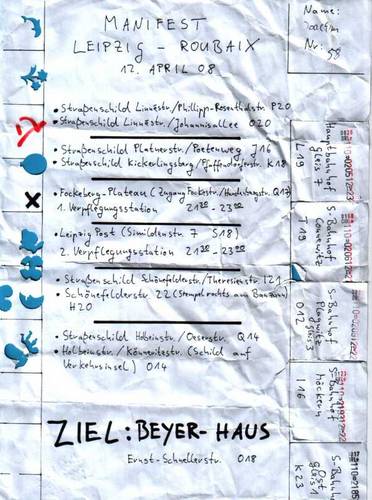 MANIFEST
LEIPZIG – ROUBAIX
12. APRIL 08
Name:
Joachim
Nr: 58
• Straßenschild Linnéstr./Philipp-Rosenthalstr. P20
• Straßenschild Linnéstr./Johannisallee O20
• Straßenschild Platnerstr./Poetenweg J16
• Straßenschild Kickerlingsberg/Pfaffendorferstr. K18
• Fockeberg-Plateau (Zugang Fockestr./Hardenbergstr. Q17)
1. Verpflegungsstation 21³⁰ - 23⁰⁰
• Leipzig Post (Simildenstr. 7 S18)
2. Verpflegungsstation 21³⁰ - 23⁰⁰
• Straßenschild Schönefelderstr./Theresienstr. I21
• Schönefelderstr. 22 (Stempel rechts am Bauzaun)
H20
• Straßenschild Holbeinstr./Oeserstr. Q14
• Holbeinstr./Könneritzstr. (Schild auf
Verkehrsinsel) O14
ZIEL: BEYER-HAUS
Ernst-Schnellerstr. O18
Hauptbahnhof
Gleis 7
L19
S-Bahnhof
Connewitz
T19
S-Bahnhof
Plagwitz
gleis 3
O12
S-Bahnhof
Möckern
I16
S-Bahnhof
Ost
gleis
K23